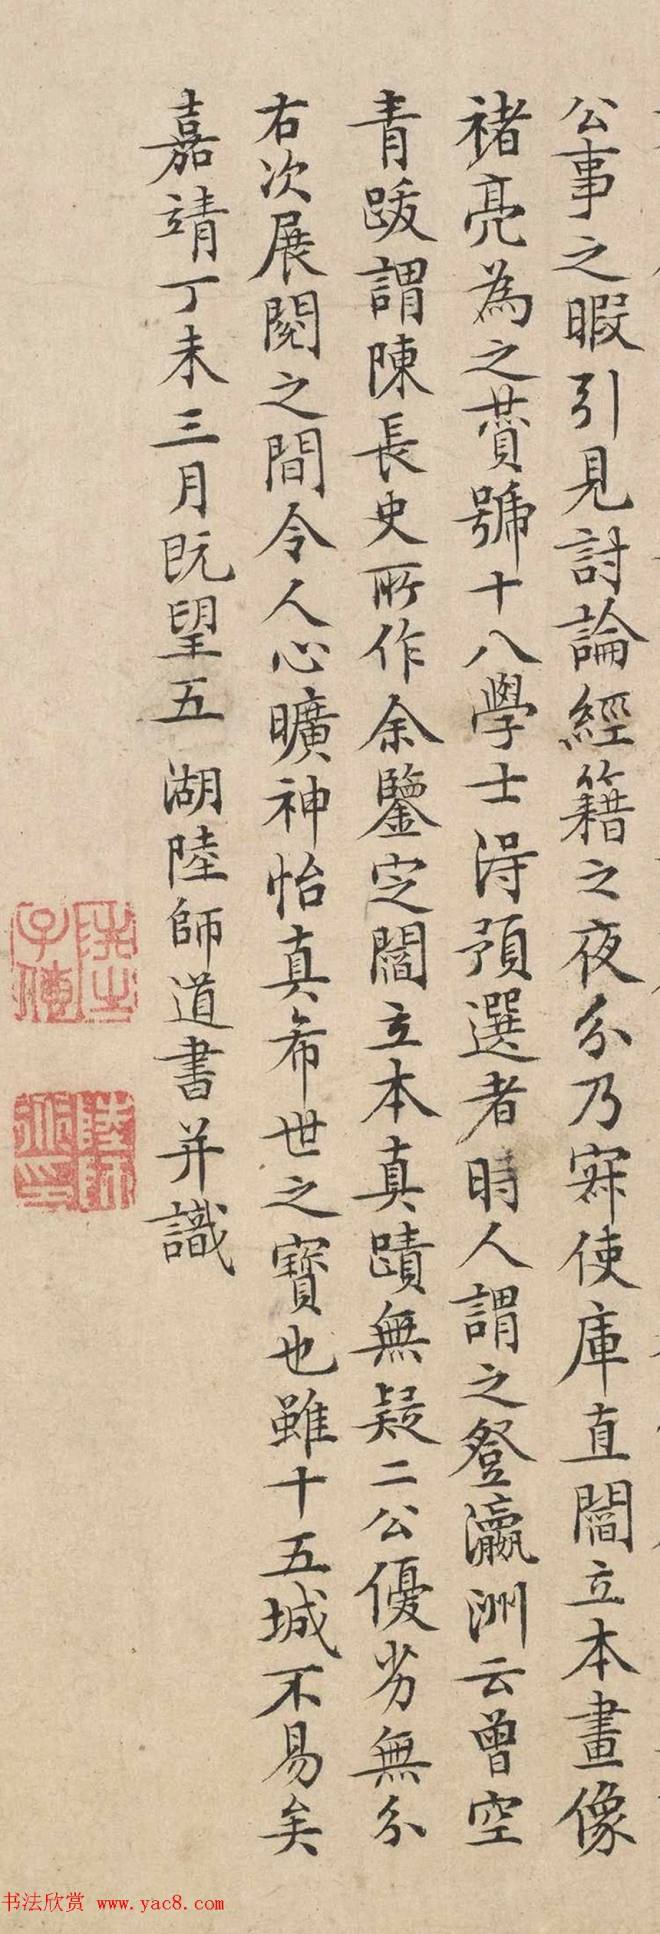 公事之暇引見討論經籍之夜分乃寐使庫直閻立本畫像
禇亮為之賛號十八學士淂預選者時人謂之登瀛洲云曾空
青跋謂陳長史所作余鑒定閻立本真蹟無疑二公優劣無分
右次展閱之間令人心曠神怡真希世之寶也雖十五城不易矣
嘉靖丁未三月既望五湖陸師道書并識
陸師道印
书法欣赏 www.yac8.com